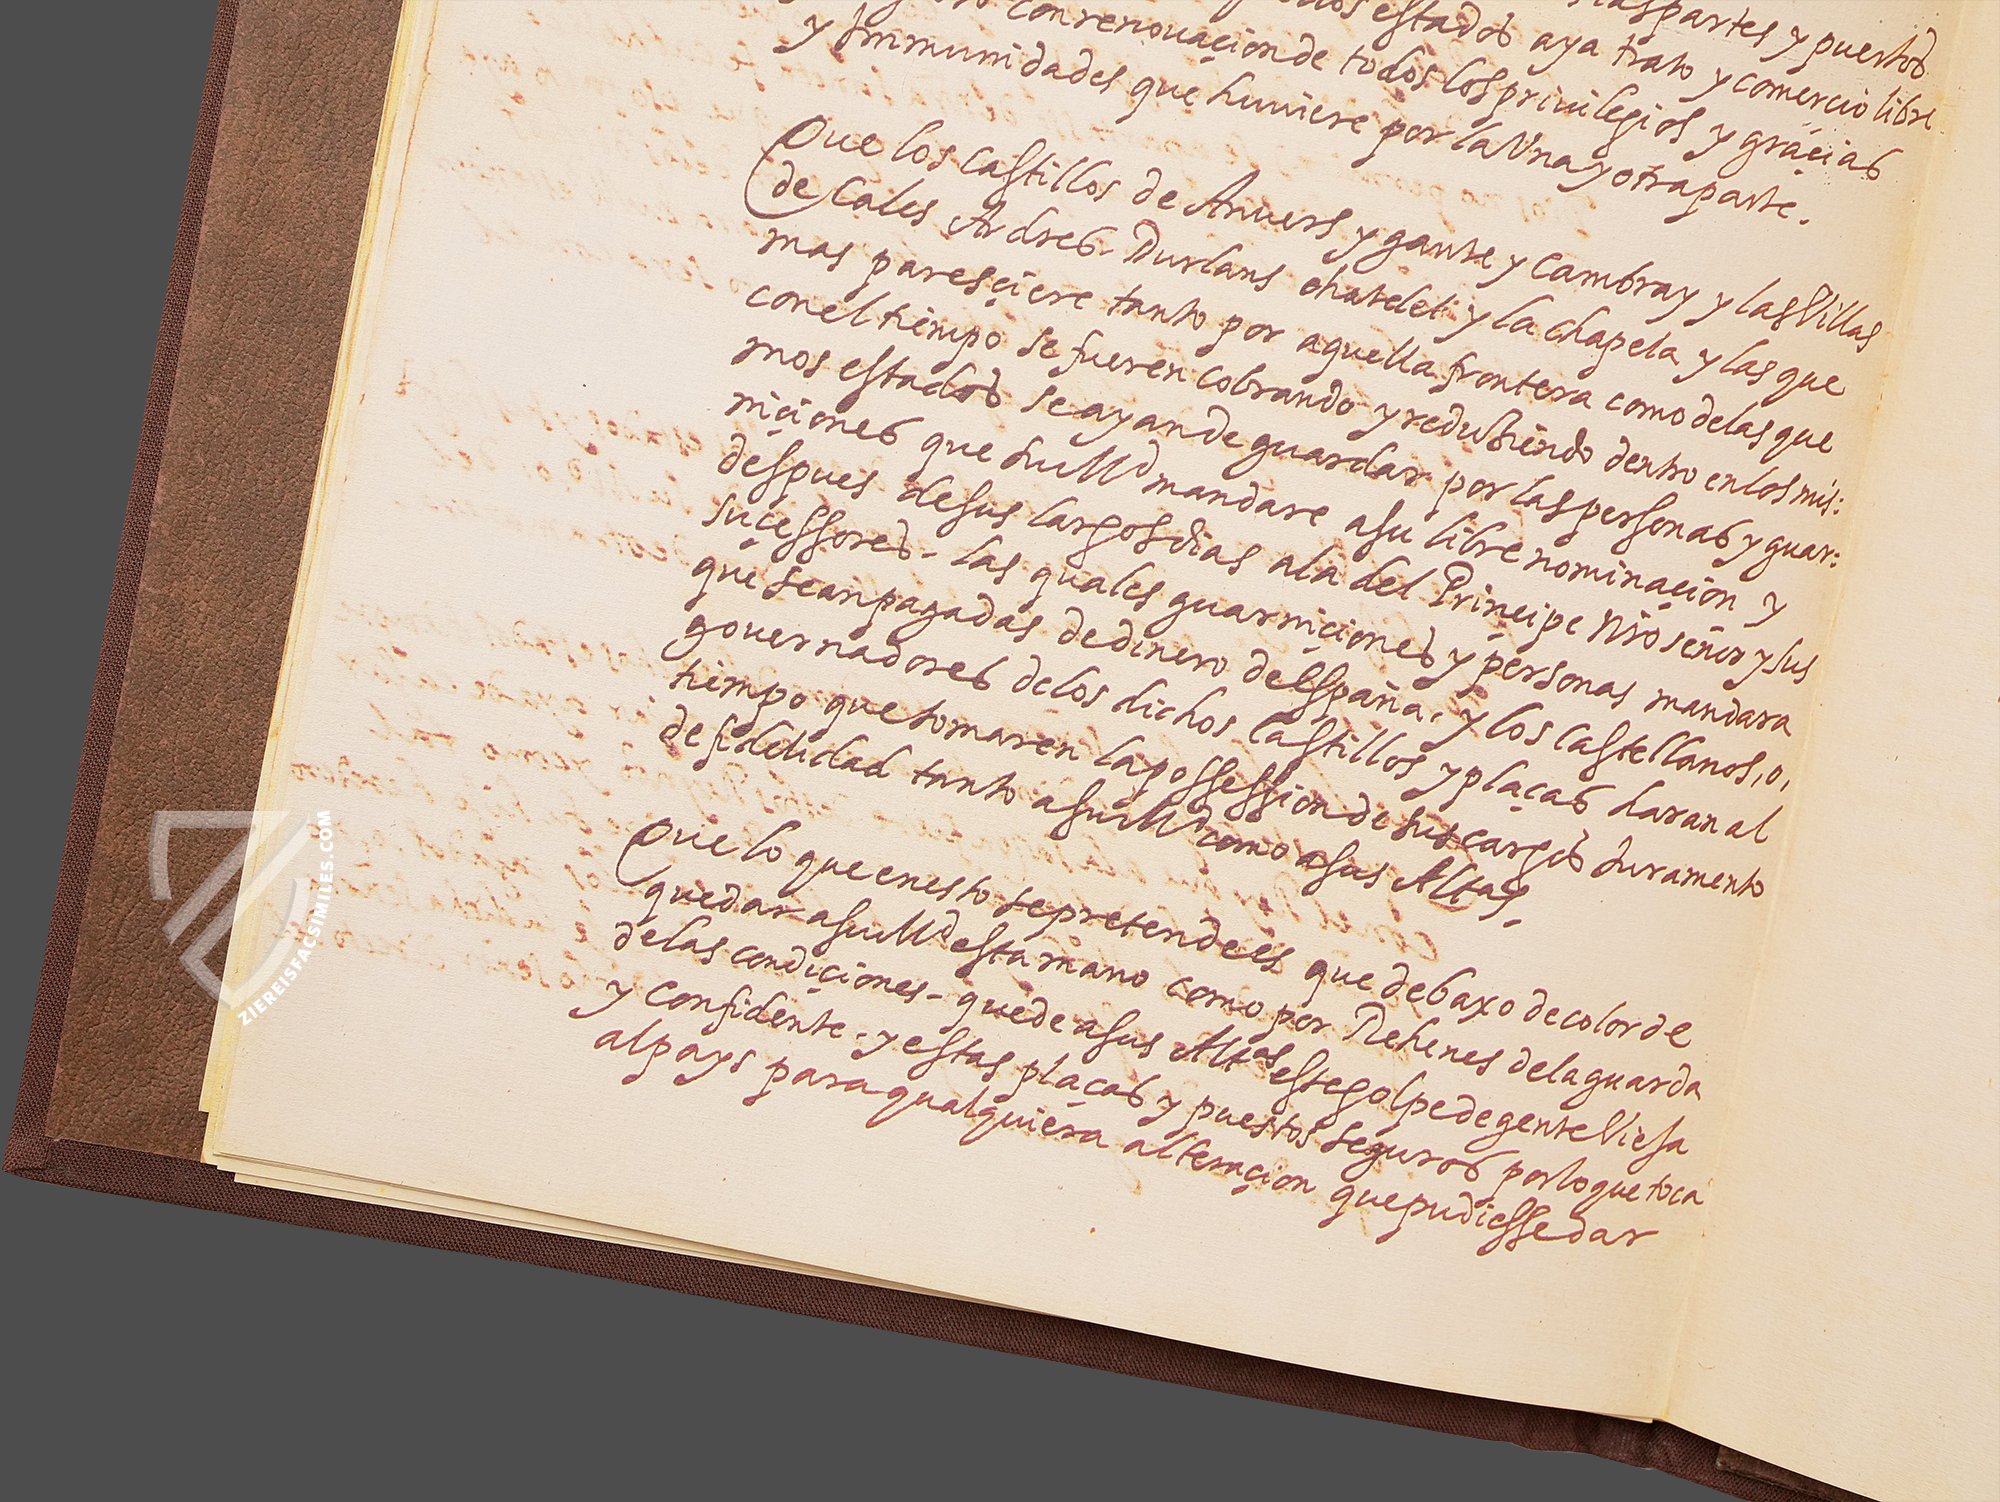 las partes y puertos
estados aya trato y comercio libre
con renouaçion de todos los priuilegios y graçias
y Jmmunidades que huuiere por la Vna y otra parte.
Que los castillos de Anuers y gante y Cambray y las Villas
de Cales Ardres Durlans chatelet y la chapela y las que
mas paresçiere tanto por aquella frontera como de las que
con el tiempo se fueren cobrando y reduziendo dentro en los mis:
mos estados se ayan de guardar por las personas y guar:
niçiones que su Md mandare a su libre nominaçion y
despues de sus largos dias a la del Prinçipe Nro señor y sus
suçessores. las quales guarniçiones y personas mandara
que sean pagadas de dinero de España. y los Castellanos, o,
gouernadores de los dichos Castillos y plaças haran al
tiempo que tomaren la possession de sus cargos Juramento
de fidelidad tanto a su Md como a sus Altas.
Que lo que en esto se pretende es que debaxo de color de
quedar a su Md esta mano como por Rehenes de la guarda
de las condiçiones. quede a sus Altas este golpe de gente Vieja
y confidente. y estas plaças y puestos seguros por lo que toca
al pays para qualquiera alteraçion que pudiesse dar
ZIEREISFACSIMILES.COM